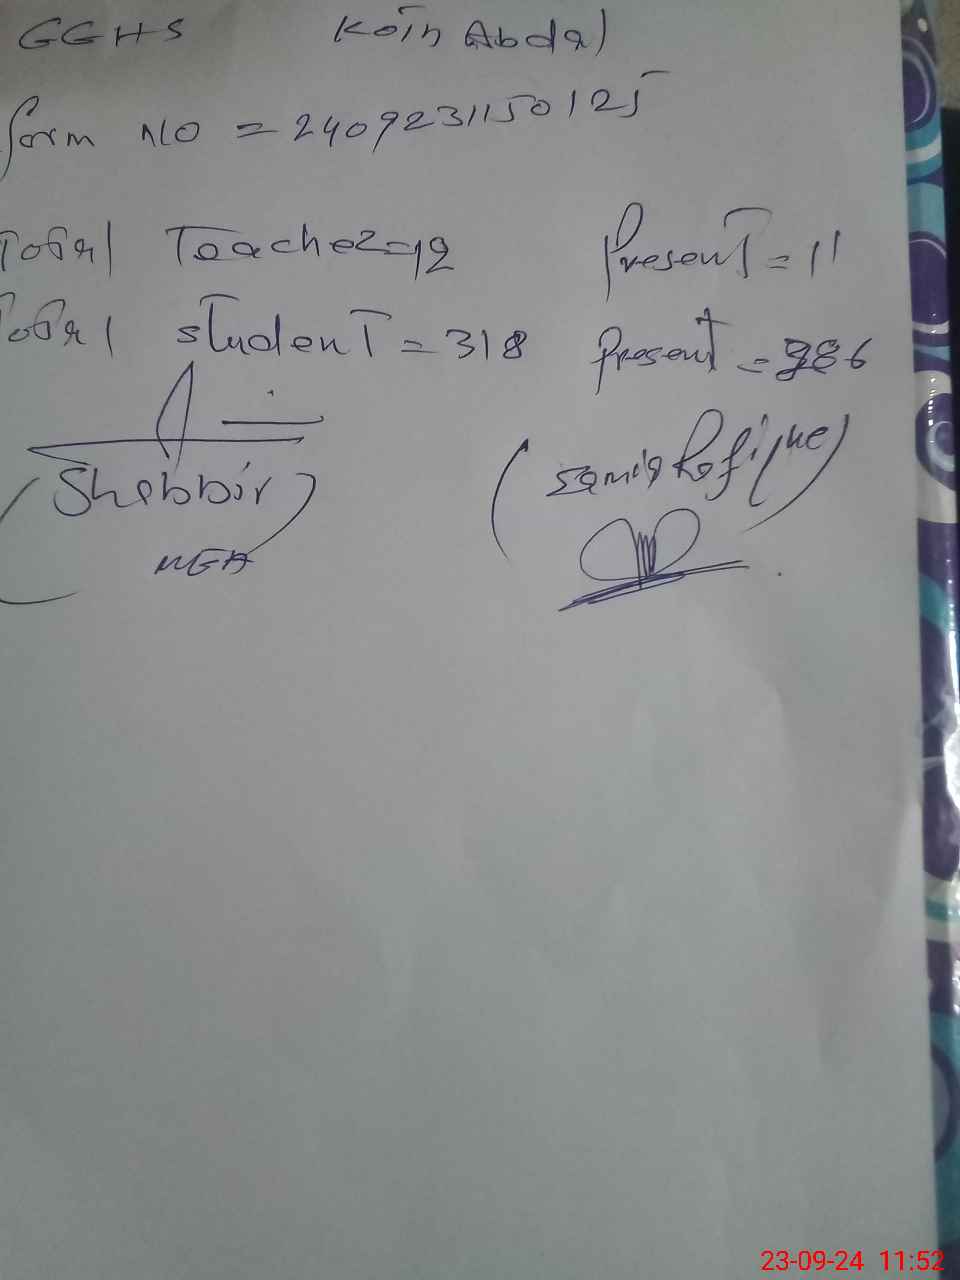 GGHS Koin Abdal
form NO = 2409231150125
Total Teacher=12 Present = 11
Total student = 318 Present = 286
(Shabbir) (Samia Rafique)
MEA
23-09-24 11:52